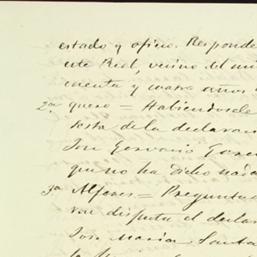 estado y oficio. Responde
este Real, vecino del mi
cuenta y cuatro años
2a quero = Habiendosele
testa de la declarac
Jose Gervacio Gonz
que no ha dicho nada
3a Alferes = Preguntad
von disputa el declar
Jose Maria Santa